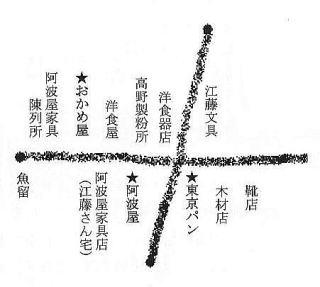 江藤文具
洋食器店
高野製粉所
洋食屋
★おかめ屋
阿波屋家具
陳列所
靴店
木材店
★東京パン
★阿波屋
阿波屋家具店
（江藤さん宅）
魚留